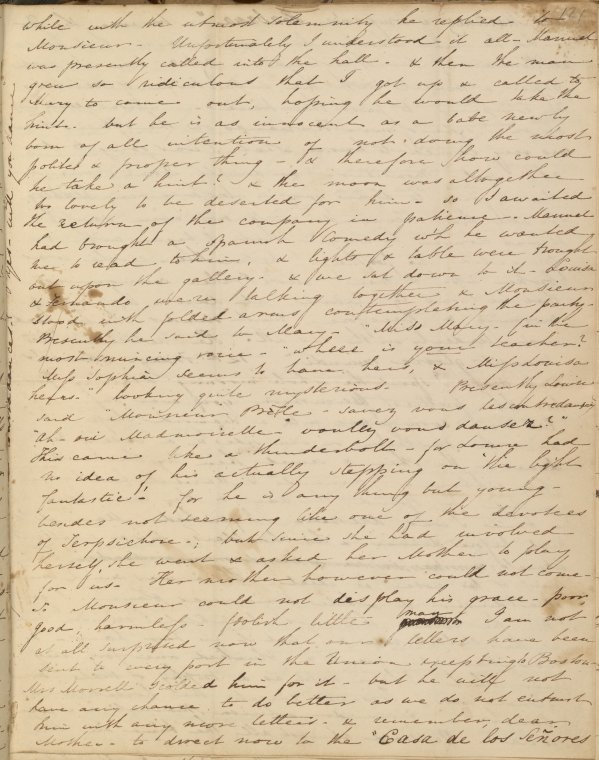 121
while with the utmost solemnity he replied to
Monsieur - Unfortunately I understood it all - Manuel
was presently called into the hall - & then the man
grew so ridiculous that I got up & called to
Mary to come out, hoping he would take the
hint - but he is as innocent as a babe newly
born of all intention of not doing the most
polite & proper thing - & therefore how could
he take a hint? & the moon was altogether
too lovely to be deserted for him - so I awaited
the return of the company in patience - Manuel
had brought a Spanish Comedy wh he wanted
me to read to him, & lights & table were brought
out upon the gallery - & we sat down to it - Louisa
& Fernando were talking together & Monsieur
stood with folded arms contemplating the party -
Presently he said to Mary - "Miss Mary - (in the
most mincing voice - "where is your teacher?
Miss Sophia seems to have hers, & Miss Louisa
hers - " looking quite mysterious Presently Louisa
said "Monsieur - savez vous les contredanses
"Ah - oui Madmoiselle - voulez vous dansez?"
This came like a thunderbolt - for Louisa had
no idea of his actually stepping on "the light
fantastic" for he is any thing but young -
besides not seeming like one of the devotees
of Terpsichore -; but since she had involved
herself, she went & asked her Mother to play
for us - Her mother however could not come -
& Monsieur could not desplay his grace - poor
good harmless - foolish little man I am not
at all surprised now that our letters have been
sent to every port in the Union excepting Boston -
Mrs Morrell scolded him for it - but he will not
have any chance to do better as we do not entrust
him with any more letters - & remember, dear
Mother - to direct now to the "Casa de los Señores